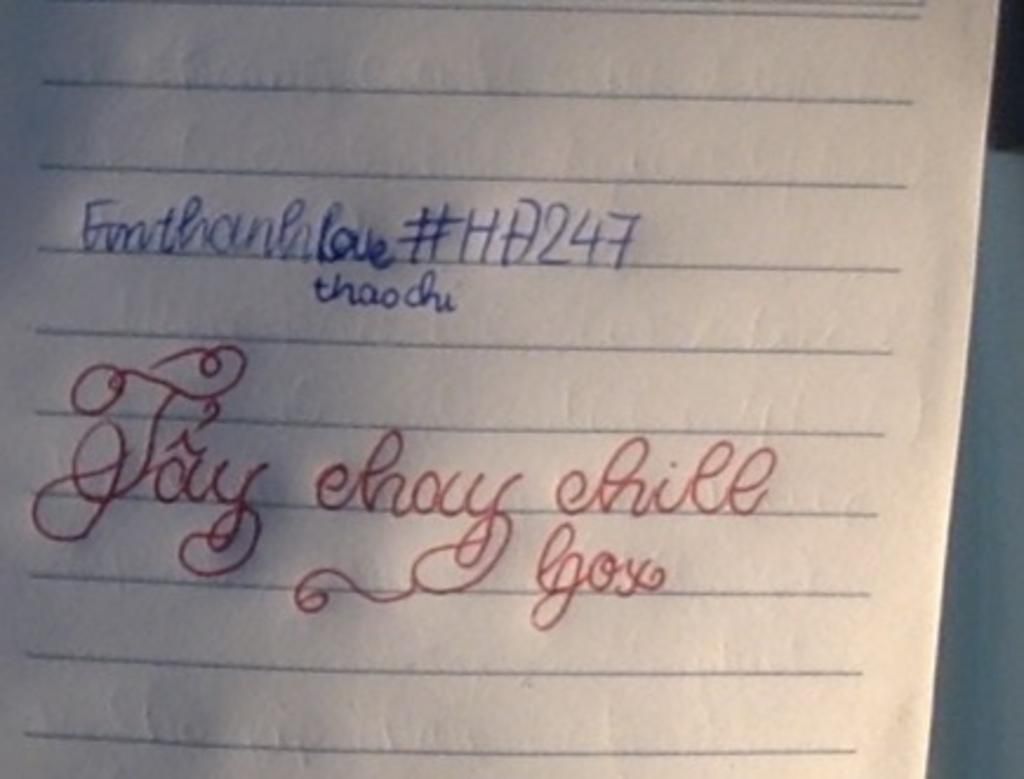 Emthanhlove #HĐ247
thaochi
Tẩy chay chill
box